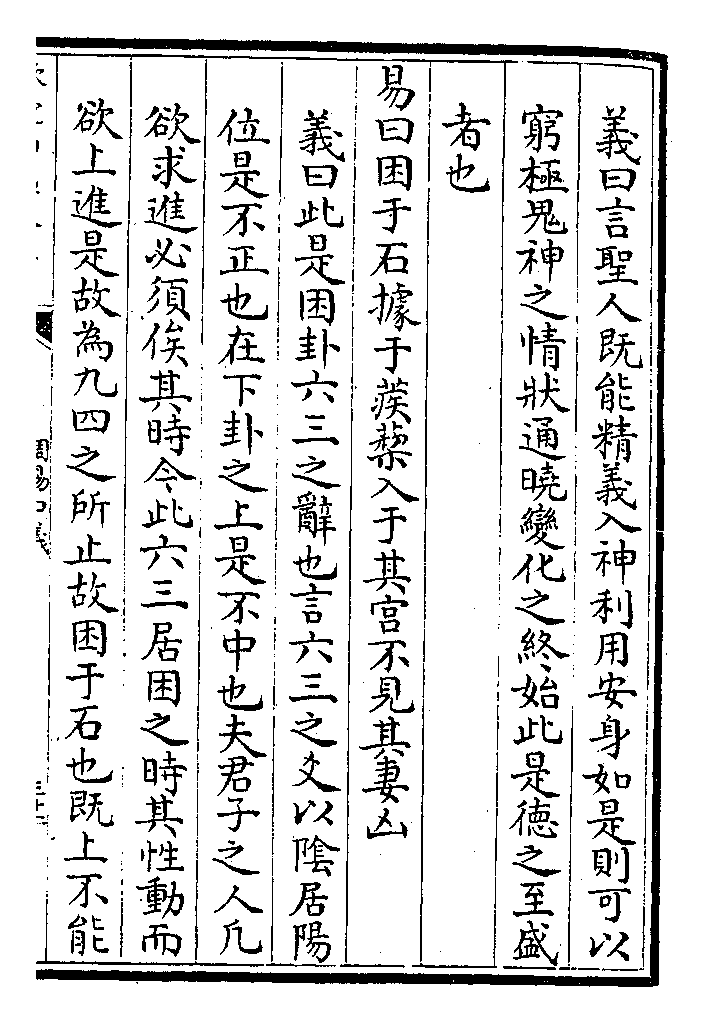 義曰言聖人既能精義入神利用安身如是則可以
窮極鬼神之情狀通曉變化之終始此是徳之至盛
者也
易曰困于石據于蒺蔾入于其宫不見其妻凶
義曰此是困卦六三之辭也言六三之爻以隂居陽
位是不正也在下卦之上是不中也夫君子之人凡
欲求進必須俟其時今此六三居困之時其性動而
欲上進是故為九四之所止故困于石也既上不能
周易口義